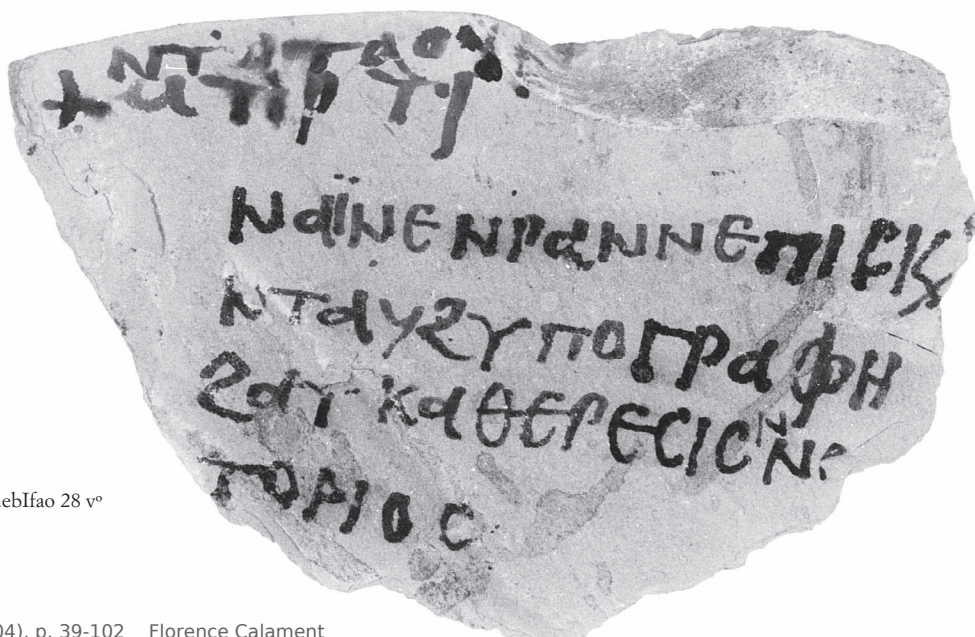 ⲛⲧⲁⲧⲁⲟⲩ
ⲛⲁⲓ̈ⲛⲉⲛⲣⲁⲛⲛⲉⲡⲓⲥⲕ
ⲛⲧⲁⲩϩⲩⲡⲟⲅⲣⲁⲫⲏ
ϩⲁⲧⲕⲁⲑⲉⲣⲉⲥⲓⲥⲛⲛⲉ
ⲧⲟⲣⲓⲟⲥ
ebIfao 28 vº
04), p. 39-102 Florence Calament